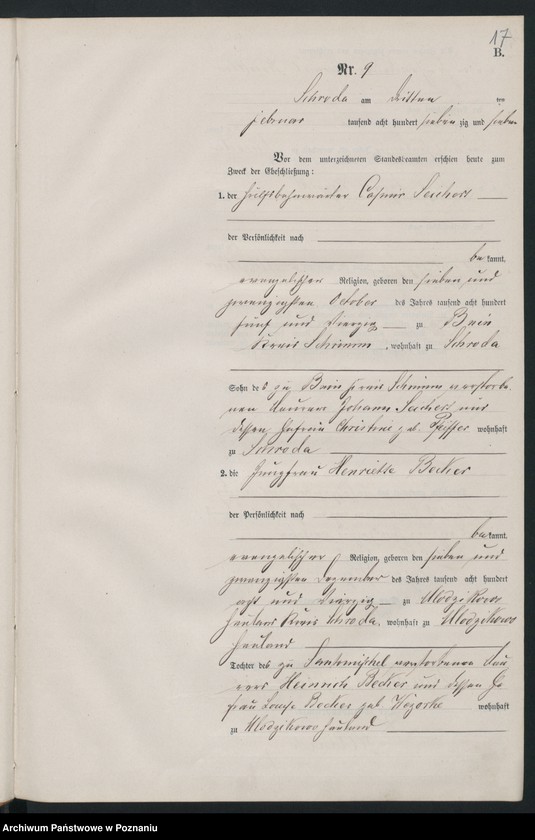 17
B.
Nr. 9
Schroda am dritten
Februar tausend acht hundert sieben zig und sieben
Vor dem unterzeichneten Standesbeamten erschien heute zum
Zweck der Eheschließung:
1. der Hülfsbahnwärter Casimir
der Persönlichkeit nach
be kannt,
evangelischer Religion, geboren den sieben und
zwanzigsten October des Jahres tausend acht hundert
fünf und vierzig zu Bnin
Kreis Schrimm, wohnhaft zu Schroda
Sohn des zu Bnin Kreis Schrimm verstorbe
nen Johann und
dessen Ehefrau Christine geb. Pfeiffer wohnhaft
zu Schroda
2. die Jungfrau Henriette Becker
der Persönlichkeit nach
be kannt,
evangelischer Religion, geboren den sieben und
zwanzigsten Dezember des Jahres tausend acht hundert
acht und vierzig zu Wlodzikowo
Hauland Kreis Schroda, wohnhaft zu Wlodzikowo
Hauland
Tochter des zu Santomischel verstorbenen
Heinrich Becker und dessen Ehe
frau Louise Becker geb.
wohnhaft
zu Wlodzikowo Hauland
Archiwum Państwowe w Poznaniu